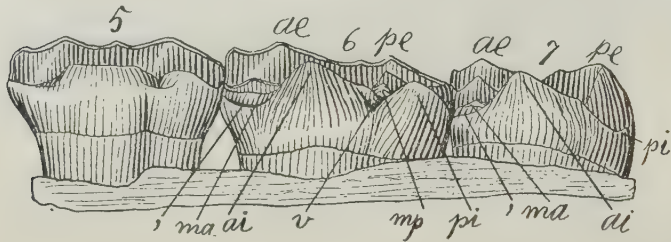 5 ae 6 pe ae 7 pe
pi
, ma ai v mp pi , ma ai